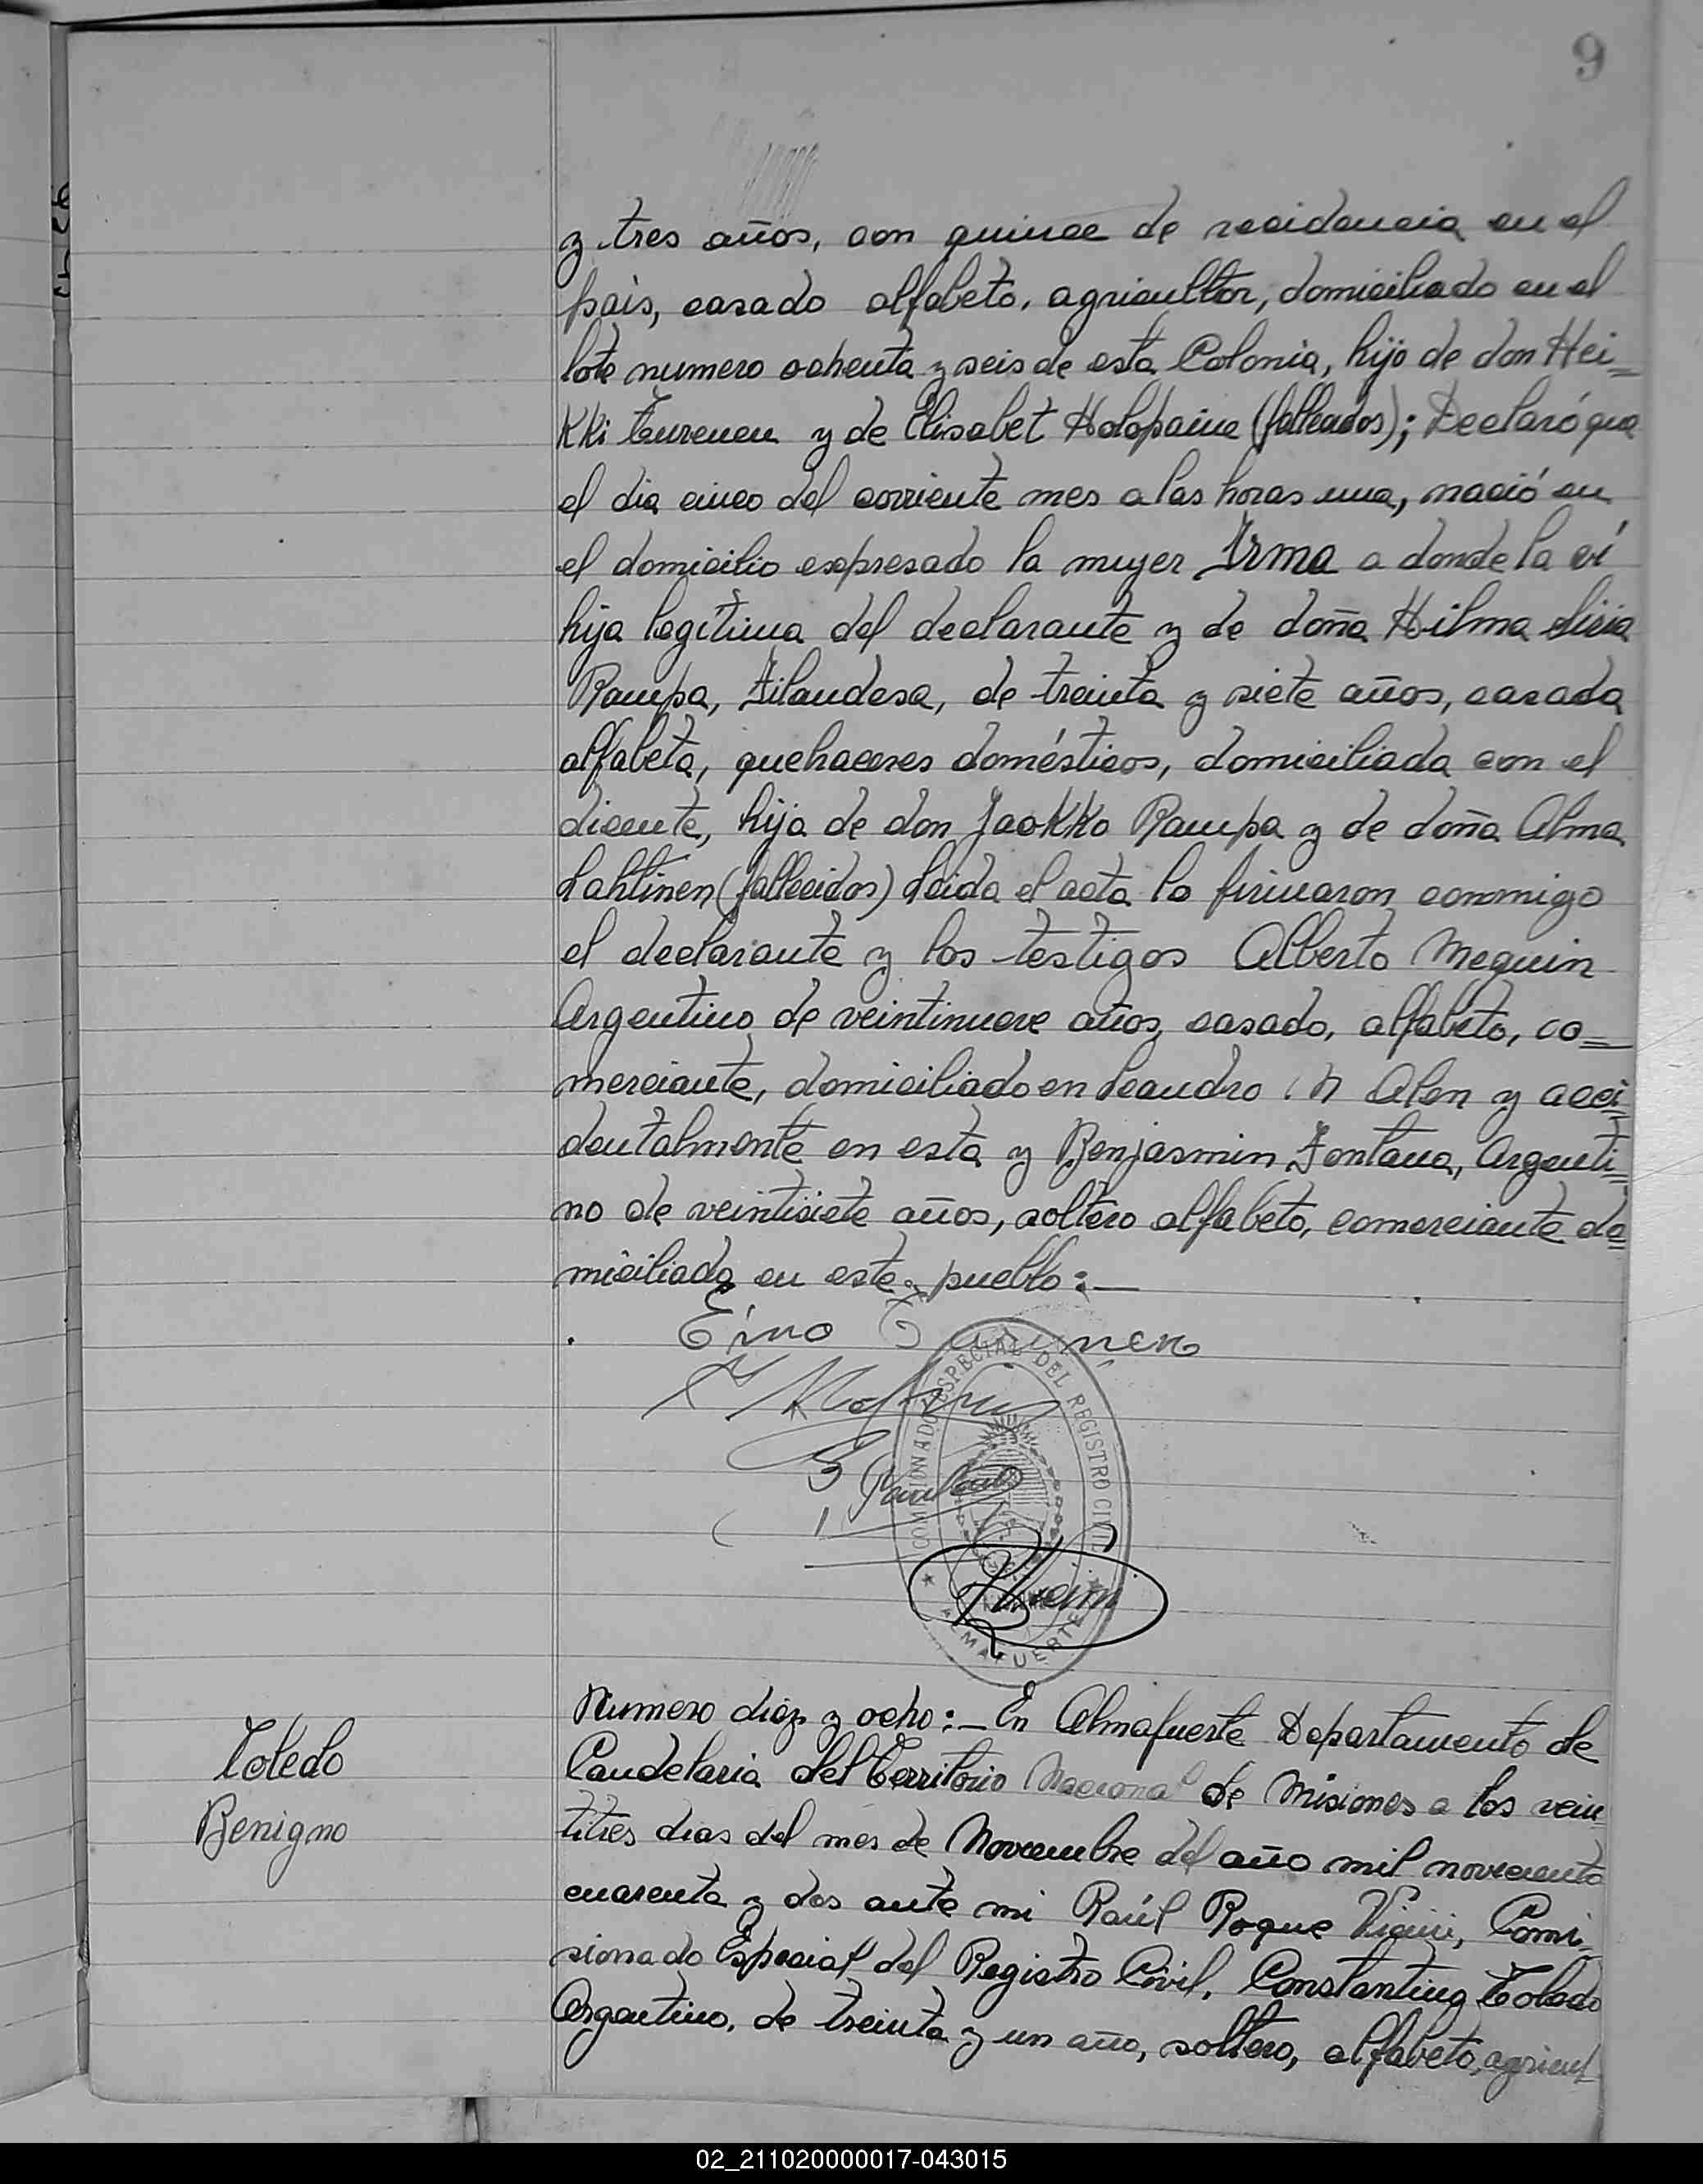 9
y tres años, con quince de residencia en el
país, casado alfabeto, agricultor, domiciliado en el
lote numero ochenta y seis de esta Colonia, hijo de don Hei=
KKi Turenen y de Elisabet Holopaine (fallecidos); Declaró que
el dia cinco del corriente mes a las horas una, nació en
el domicilio expresado la mujer Irma a donde la ví
hija legítima del declarante y de doña Hilma
Rampa, Filandesa, de treinta y siete años, casada
alfabeta, quehaceres domésticos, domiciliada con el
dicente, hija de don JaoKKo Rampa y de doña Alma
Lahtinen (fallecidos) Leida el acta la firmaron conmigo
el declarante y los testigos Alberto Mequin
Argentino de veintinueve años, casado, alfabeto, co=
merciante, domiciliado en Leandro N Alen y acci=
dentalmente en esta y Benjasmin Fontana, Argenti=
no de veintisiete años, soltero alfabeto, comerciante do=
miciliado en este pueblo:—
Eino
COMISIONADO ESPECIAL DEL REGISTRO CIVIL
★ ALMAFUERTE ★
Toledo
Benigno
Numero diez y ocho:— En Almafuerte Departamento de
Candelaria del Territorio Nacional de Misiones a los vein
titres dias del mes de Noviembre del año mil noveciento
cuarenta y dos ante mi Raúl Roque Comi=
sionado Especial del Registro Civil, Constantino Toledo
Argentino, de treinta y un año, soltero, alfabeto, agricul
02_211020000017-043015